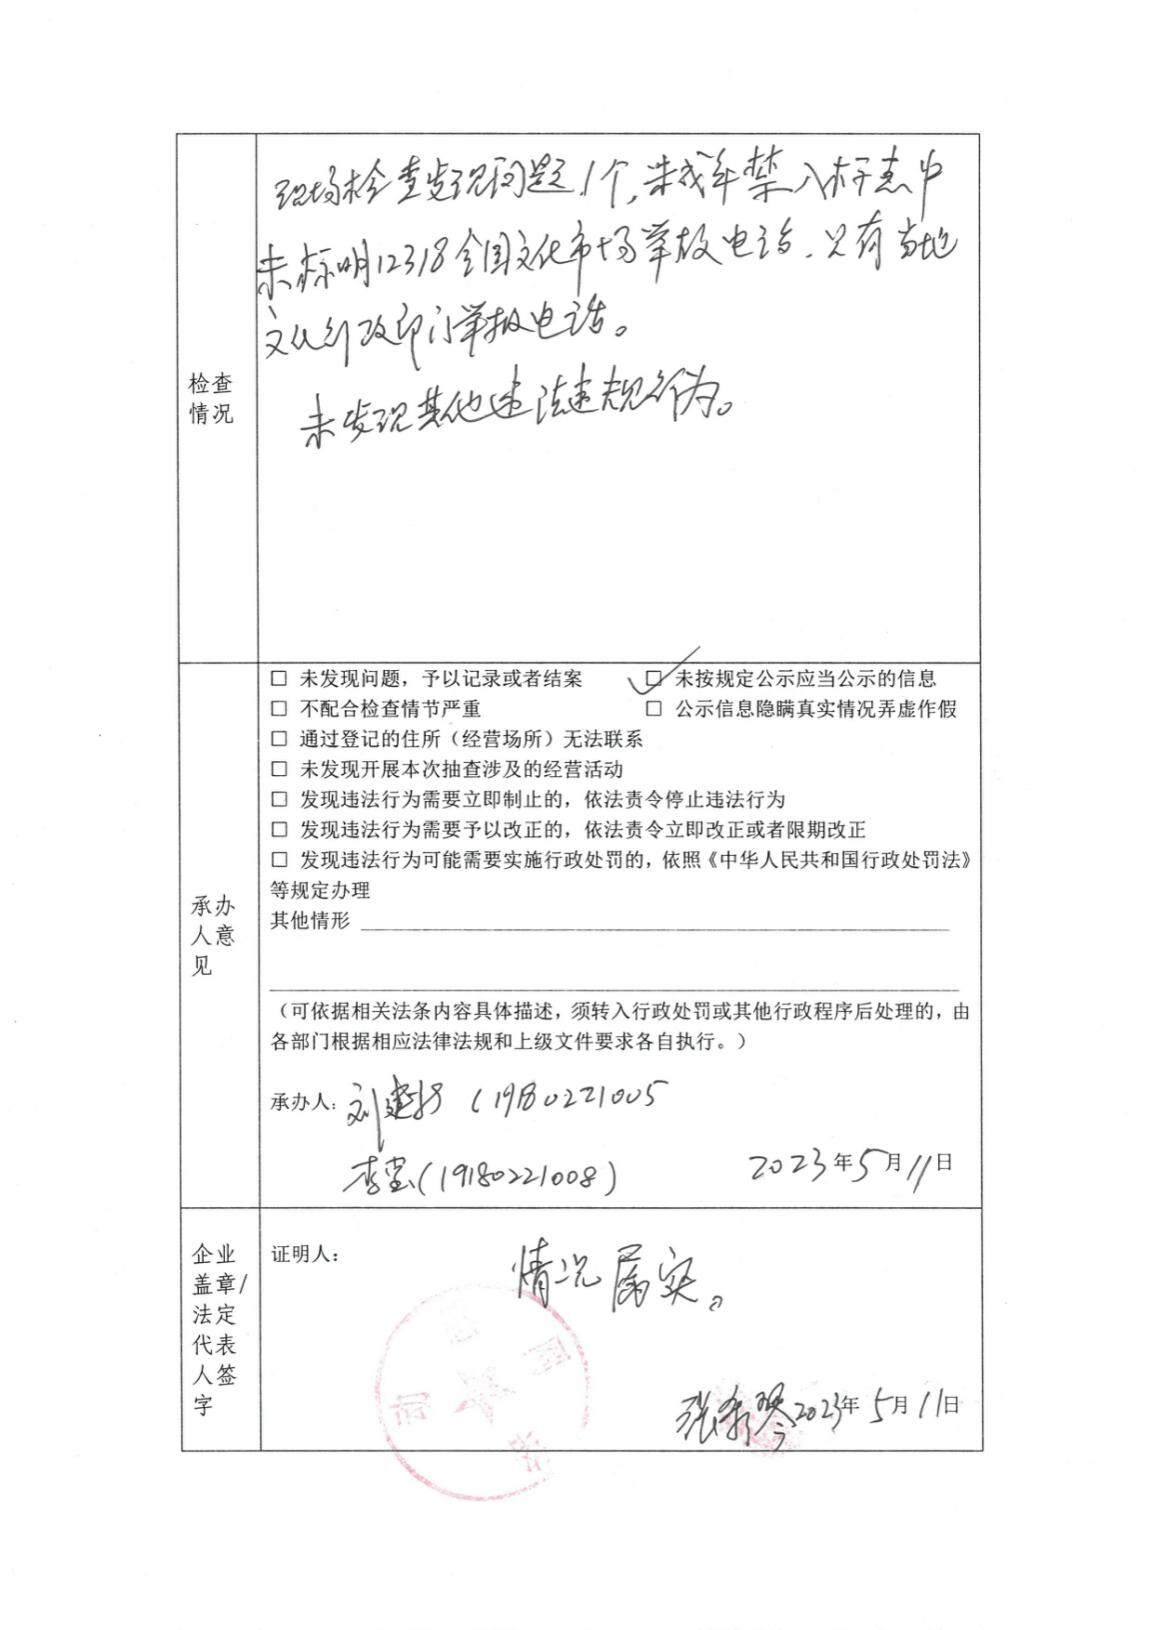 检查
情况
现场检查发现问题1个,未成年禁入标志中
未标明12318全国文化市场举报电话,只有当地
文化行政部门举报电话。
未发现其他违法违规行为。
承办
人意
见
□ 未发现问题，予以记录或者结案 □ 未按规定公示应当公示的信息
□ 不配合检查情节严重 □ 公示信息隐瞒真实情况弄虚作假
□ 通过登记的住所（经营场所）无法联系
□ 未发现开展本次抽查涉及的经营活动
□ 发现违法行为需要立即制止的，依法责令停止违法行为
□ 发现违法行为需要予以改正的，依法责令立即改正或者限期改正
□ 发现违法行为可能需要实施行政处罚的，依照《中华人民共和国行政处罚法》
等规定办理
其他情形
（可依据相关法条内容具体描述，须转入行政处罚或其他行政程序后处理的，由
各部门根据相应法律法规和上级文件要求各自执行。）
承办人: 刘建 (19180221005
李莹(19180221008)
2023年5月11日
企业
盖章/
法定
代表
人签
字
证明人:
情况属实。
张 琴2023年5月11日